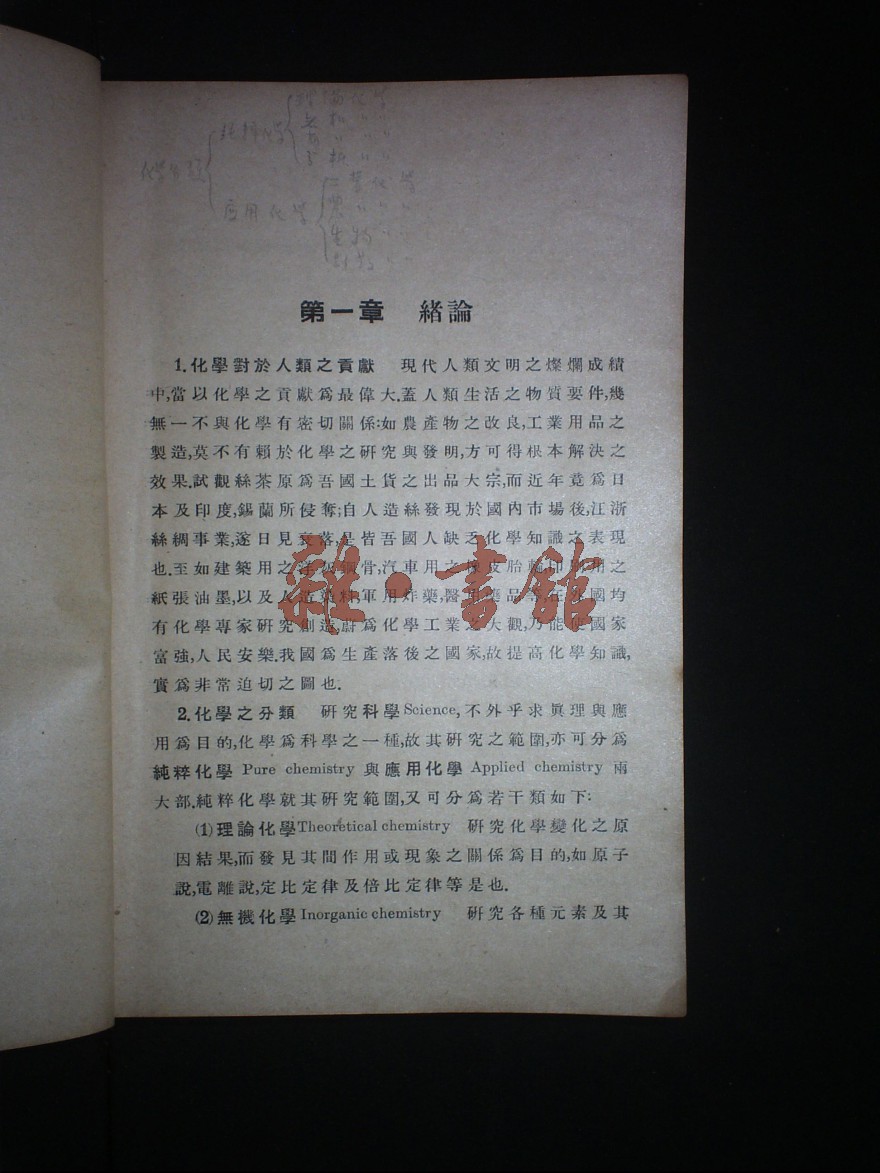 化學分類
純粹化學
理論化學
無機〃〃
有機〃〃
分析〃〃
應用化學
工業化學
農〃〃〃
生物〃〃
第一章 緒論
1.化學對於人類之貢獻 現代人類文明之燦爛成績
中,當以化學之貢獻爲最偉大.蓋人類生活之物質要件,幾
無一不與化學有密切關係:如農產物之改良,工業用品之
製造,莫不有賴於化學之硏究與發明,方可得根本解決之
效果.試觀絲茶原爲吾國土貨之出品大宗,而近年竟爲日
本及印度,錫蘭所侵奪;自人造絲發現於國內市場後,江浙
絲綢事業,遂日見衰落,是皆吾國人缺乏化學知識之表現
也.至如建築用之洋灰鋼骨,汽車用之橡皮胎輪,印刷用之
紙張油墨,以及人造染料,軍用炸藥,醫用藥品等,在外國均
有化學專家硏究創造,蔚爲化學工業之大觀,乃能使國家
富強,人民安樂.我國爲生產落後之國家,故提高化學知識,
實爲非常迫切之圖也.
2.化學之分類 硏究科學Science,不外乎求眞理與應
用爲目的,化學爲科學之一種,故其硏究之範圍,亦可分爲
純粹化學 Pure chemistry 與應用化學 Applied chemistry 兩
大部.純粹化學就其硏究範圍,又可分爲若干類如下:
(1)理論化學Theoretical chemistry 硏究化學變化之原
因結果,而發見其間作用或現象之關係爲目的,如原子
說,電離說,定比定律及倍比定律等是也.
(2)無機化學Inorganic chemistry 硏究各種元素及其
雜·書館